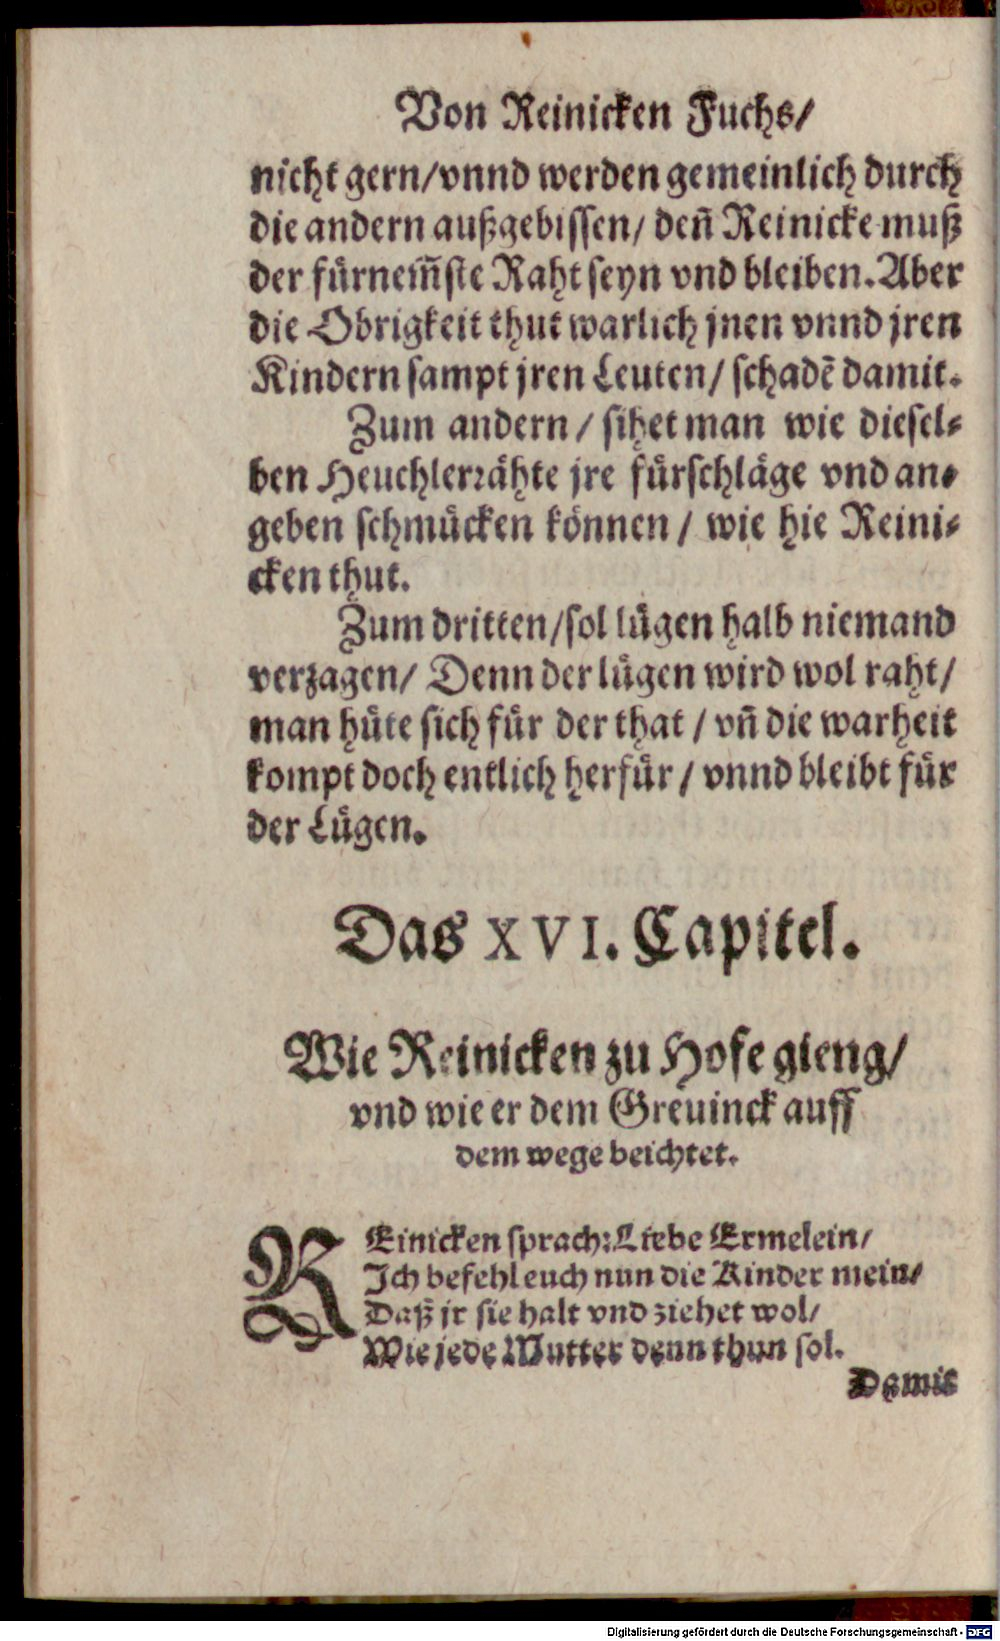 Von Reinicken Fuchs/
nicht gern/vnnd werden gemeinlich durch
die andern außgebissen/ deñ Reinicke muß
der fürnem̃ste Raht seyn vnd bleiben. Aber
die Obrigkeit thut warlich jnen vnnd jren
Kindern sampt jren Leuten/ schadẽ damit.
Zum andern/ sihet man wie diesel⸗
ben Heuchlerꝛähte jre fürschläge vnd an⸗
geben schmücken können/ wie hie Reini⸗
cken thut.
Zum dritten/sol lügen halb niemand
verzagen/ Denn der lügen wird wol raht/
man hüte sich für der that/ vñ die warheit
kompt doch entlich herfür/ vnnd bleibt für
der Lügen.
Das XVI. Capitel.
Wie Reinicken zu Hofe gieng/
vnd wie er dem Greuinck auff
dem wege beichtet.
REinicken sprach: Liebe Ermelein/
Ich befehl euch nun die Kinder mein/
Daß jr sie halt vnd ziehet wol/
Wie jede Mutter denn thun sol.
Damit
Digitalisierung gefördert durch die Deutsche Forschungsgemeinschaft - DFG